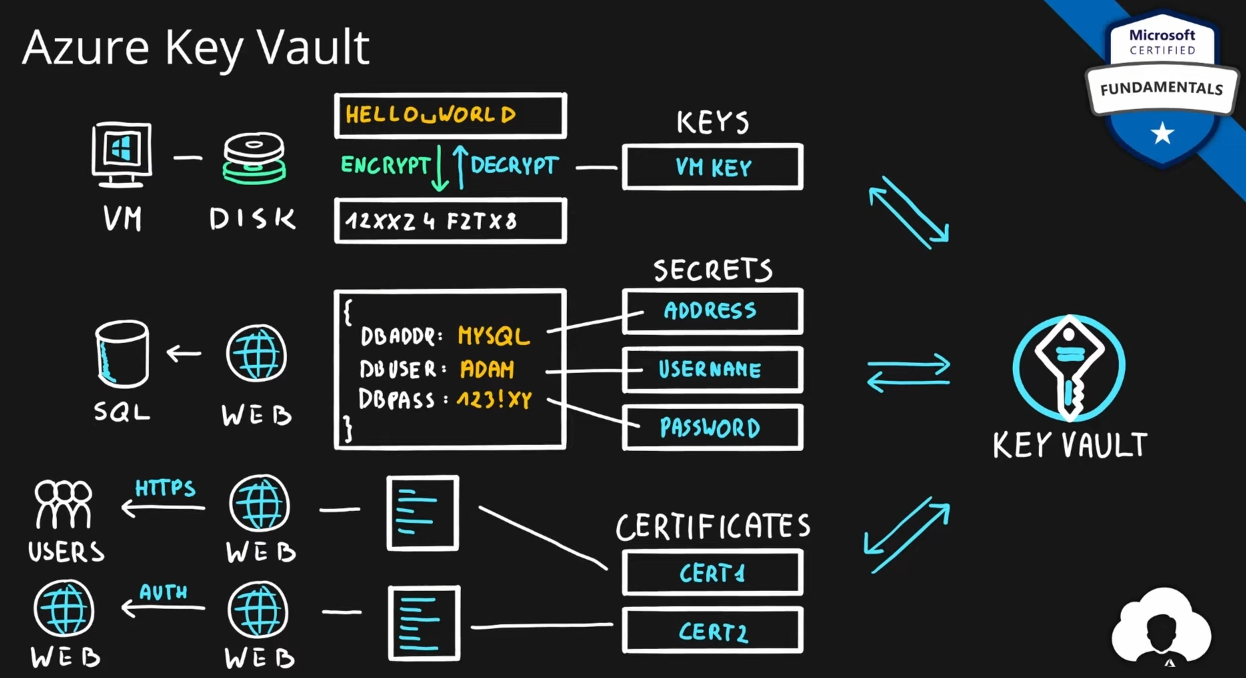 Azure Key Vault
Microsoft
CERTIFIED
FUNDAMENTALS
HELLO␣WORLD
ENCRYPT
DECRYPT
12XXZ4 FZTX8
VM
DISK
KEYS
VM KEY
SECRETS
{
DBADDR: MYSQL
DBUSER: ADAM
DBPASS: 123!XY
}
ADDRESS
USERNAME
PASSWORD
SQL
WEB
KEY VAULT
HTTPS
USERS
WEB
CERTIFICATES
CERT1
AUTH
WEB
WEB
CERT2